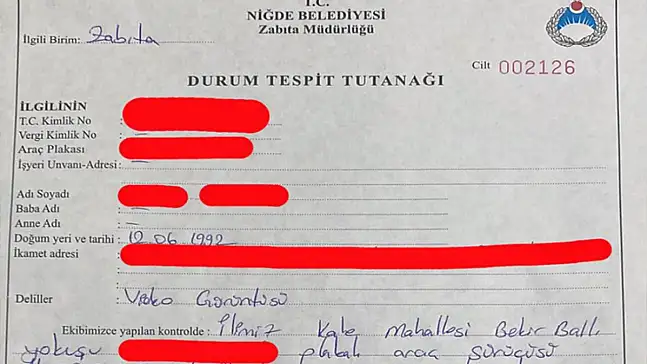 T.C.
NİĞDE BELEDİYESİ
Zabıta Müdürlüğü
İlgili Birim: Zabıta
Cilt 002126
DURUM TESPİT TUTANAĞI
İLGİLİNİN
T.C. Kimlik No :
Vergi Kimlik No : —
Araç Plakası :
İşyeri Unvanı-Adresi: —
Adı Soyadı :
Baba Adı : —
Anne Adı : —
Doğum yeri ve tarihi : 12.06.1992
İkamet adresi :
Deliller : Video Görüntüsü
Ekibimizce yapılan kontrolde : İlimiz Kale Mahallesi Bekir Ballı
yokuşu plakalı araç sürücüsü